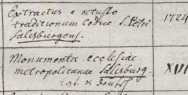 Extractus e vetusto
traditionum Codice S. Petri
Salisburgens. 1724
Monumenta ecclesiae
metropolitanae Salisburg XVI